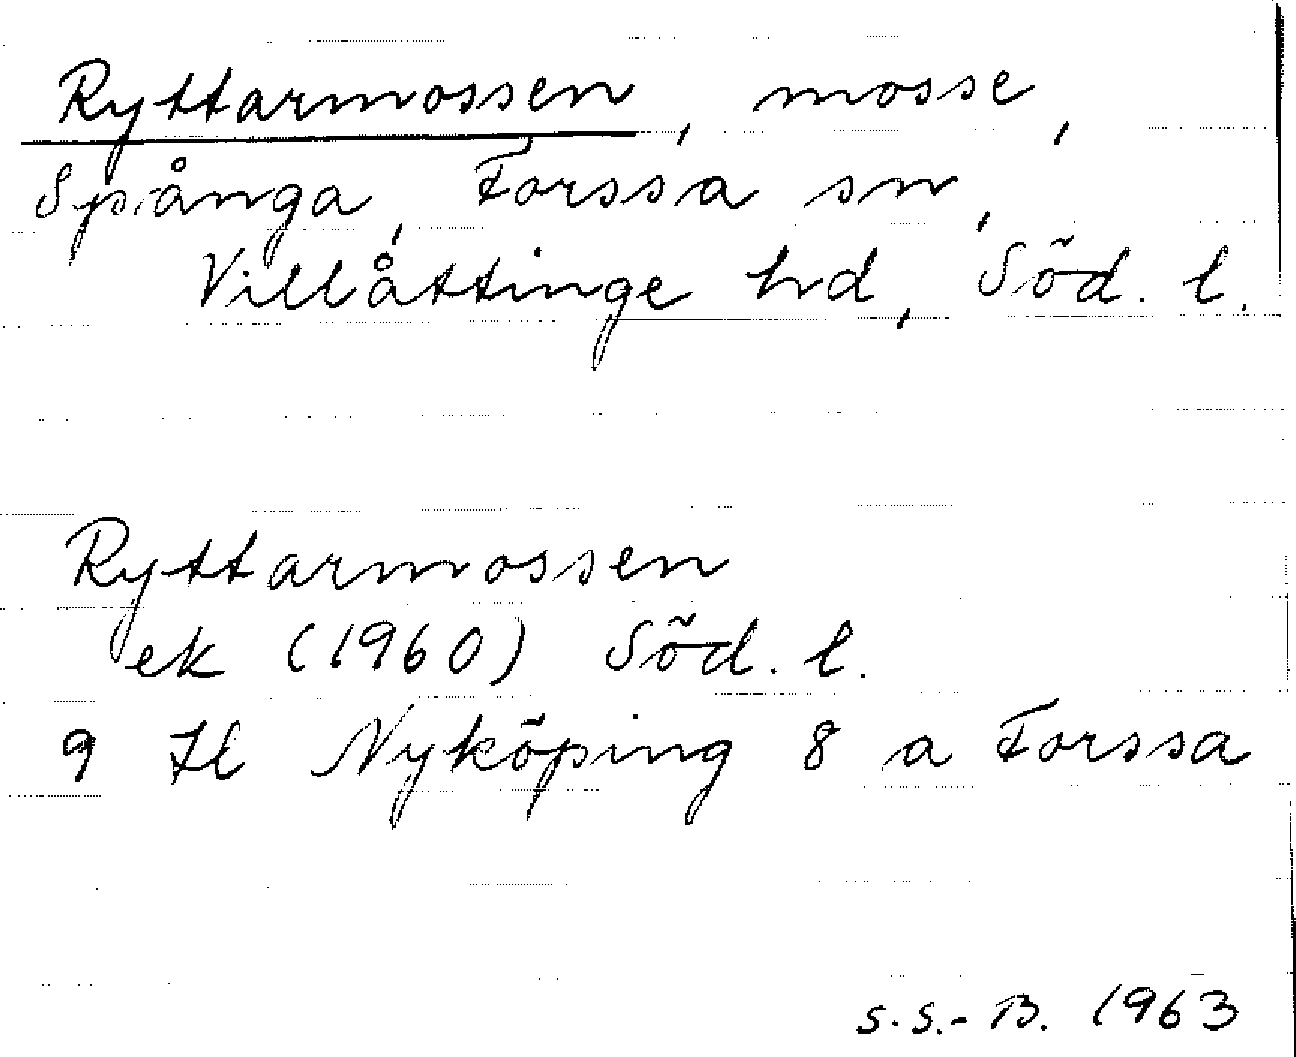 Ryttarmossen, mosse,
Spånga, Forssa sn,
Villåttinge hd, Söd. l.
Ryttarmossen
ek (1960) Söd. l.
9 H Nyköping 8 a Forssa
S.S.-B. 1963